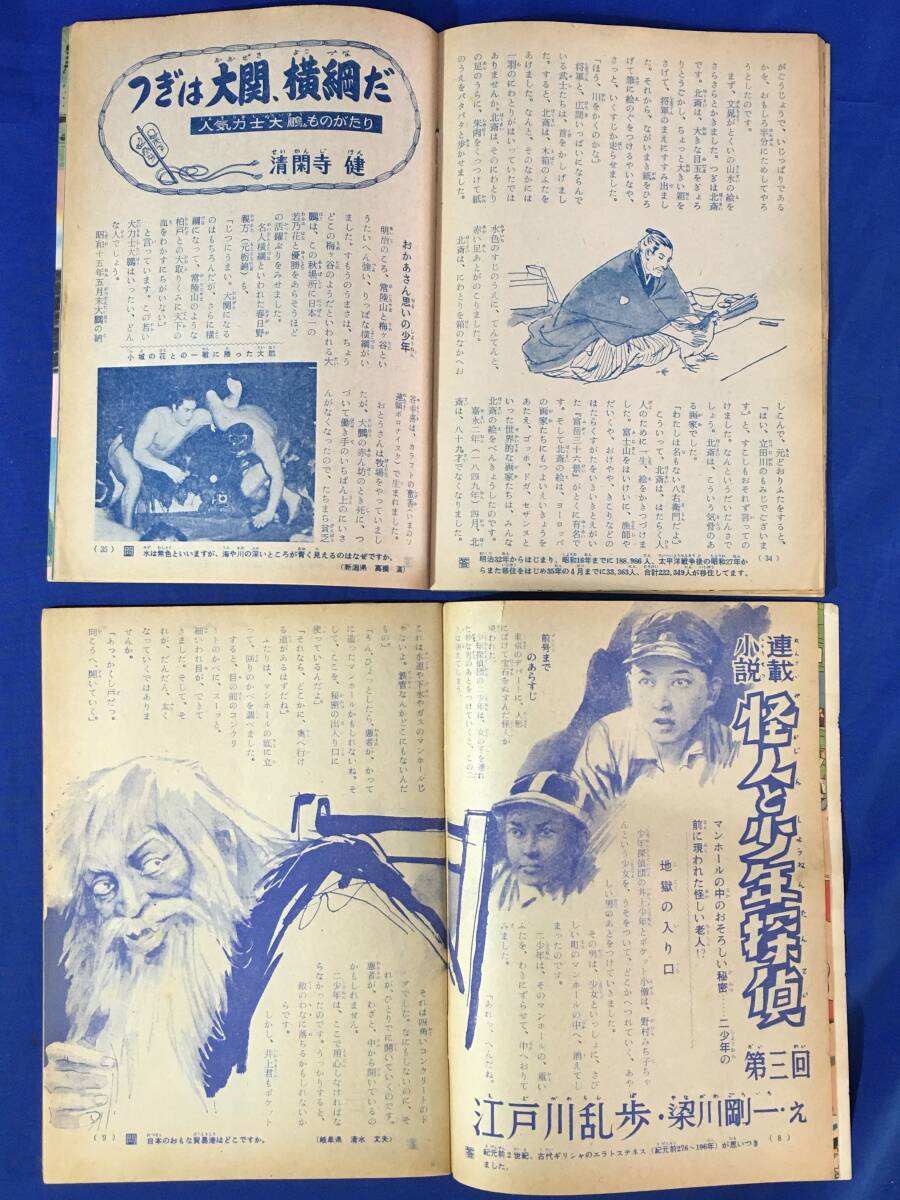 がごうじょうで、いじっぱりである
かを、おもしろ半分にためしてやろ
うとしたのです。
まず、文晁がとくいの山水の絵を
さらさらとかきました。つぎは北斎
です。北斎は、大きな目玉をぎょろ
りとうごかし、ちょっと大きい箱を
さげて、将軍のまえにすすみ出まし
た。それから、ながいまき紙をひろ
げて筆に絵のぐをつけるやいなや、
さっと、いくすじか走らせました。
「ほう、川をかくのかな。」
将軍と、広間いっぱいにならんで
いる武士たちは、首をかしげまし
た。すると、北斎は、木箱のふたを
あけました。なんと、そのなかには
一羽のにわとりがはいっていたでは
ありませんか。北斎は、そのにわとり
の足のうらに、朱肉をくっつけて紙
のうえをパタパタと歩かせました。
水色すじのうえに、てんてんと、
赤い足あとがのこりました。
北斎は、にわとりを箱のなかへお
しこんで、元どおりふたをすると、
「はい、立田川のもみじでございま
す」と、すこしもおそれず言っての
けました。なんというだいたんさで
しょう。北斎は、こういう気骨のあ
る画家でした。
「わたしは名もない八右衛門だよ」
こういって、北斎は、はたらく人
人のために一生、絵をかきつづけま
した。富士山をはいけいに、漁師や
だいくや、おけやや、きこりなどの
はたらくすがたをいきいきとえがい
た『富岳三十六景』がとくに名高で
す。そして北斎の絵は、ヨーロッパ
の画家たちにもつよいえいきょうを
あたえ、ゴッホ、ドガ、セザンヌと
いった世界的な画家たちは、みんな
北斎の絵をべんきょうしたのです。
嘉永二年（一八四九年）四月、北
斎は、八十九才でなくなりました。
(34)
明治32年からはじまり、昭和16年までに188,986人、太平洋戦争後の昭和27年か
らまた移住をはじめ35年の4月までに33,363人、合計222,349人が移住してます。
つぎは大関、横綱だ
人気力士“大鵬”ものがたり
清閑寺 健
おかあさん思いの少年
明治のころ、常陸山と梅ヶ谷とい
うたいへん強い、りっぱな横綱がい
ました。すもうのうまさは、ちょう
どこの梅ヶ谷のようだといわれる大
鵬は、この秋場所に日本一の
若乃花と優勝をあらそうほど
の活躍ぶりをみせました。
名人横綱といわれた春日野
親方（元栃錦）も、
「じつにうまい。大関になる
のはもちろんだが、さらに横
綱になって、常陸山のような
柏戸との大取りくみに天下の
血をわかすにちがいない」
と言っています。この若い
大力士大鵬はいったい、どん
な人でしょう。
昭和十五年五月末大鵬の納
小城の花との一戦に勝った大鵬
谷幸喜は、カラフトの敷香（いまのソ
連領ポロナイスク）で生まれました。
おとうさんは牧場をやっていまし
たが、大鵬の赤ん坊のとき死に、つ
づいて働き手のいちばん上のにいさ
んがなくなったので、たちまち貧乏
(35)
問 水は無色といいますが、海や川の深いところが青く見えるのはなぜですか。
（新潟県 高橋 満）
連載
小説
怪人と少年探偵
第三回
江戸川乱歩・梁川剛一・え
マンホールの中のおそろしい秘密……二少年の
前に現われた怪しい老人!?
前号まで
のあらすじ
地獄の入り口
少年探偵団の井上少年とポケット小僧は、野村みち子ちゃ
んという少女を、うそをついて、どこかへつれていく、あや
しい男のあとをつけていきました。
その男は、少女といっしょに、さび
しい町のマンホールの中へ、消えてし
まったのです。
二少年は、そのマンホールの、重い
ふたを、わきにずらせて、中へおりて
みました。
「あれっ、へんだね。
(8)
答 紀元前2世紀、古代ギリシャのエラトステネス（紀元前276～196年）が思いつき
ました。
これは水道や下水やガスのマンホールじ
ゃないよ。鉄管なんかどこにもないんだ
もの」
「うん、ひょっとしたら、悪者が、かって
に造ったマンホールかもしれないね。そ
して、ここを、秘密の出入り口に
使っているんだよ」
「それなら、どこかに、奥へ行け
る道があるはずだね」
ふたりは、マンホールの底に立
って、回りのかべを調べました。
すると、目の前のコンクリ
ートのかべに、スーッと、
細いわれ目が、できて
きました。そして、そ
れが、だんだん、太く
なっていくではありま
せんか。
「あっ、かくし戸だっ。
向こうへ、開いていく」
それは四角いコンクリートのド
アでした。なにもしないのに、そ
れが、ひとりでに開いていくのです。
悪者が、わざと、中から開いているの
かもしれません。
二少年は、ここで用心しなければな
らなかったのです。うっかりすると、
敵のわなに落ちるかもしれないか
らです。
しかし、井上君もポケット
(9)
問 日本のおもな貿易港はどこですか。
（岐阜県 清水 丈夫）